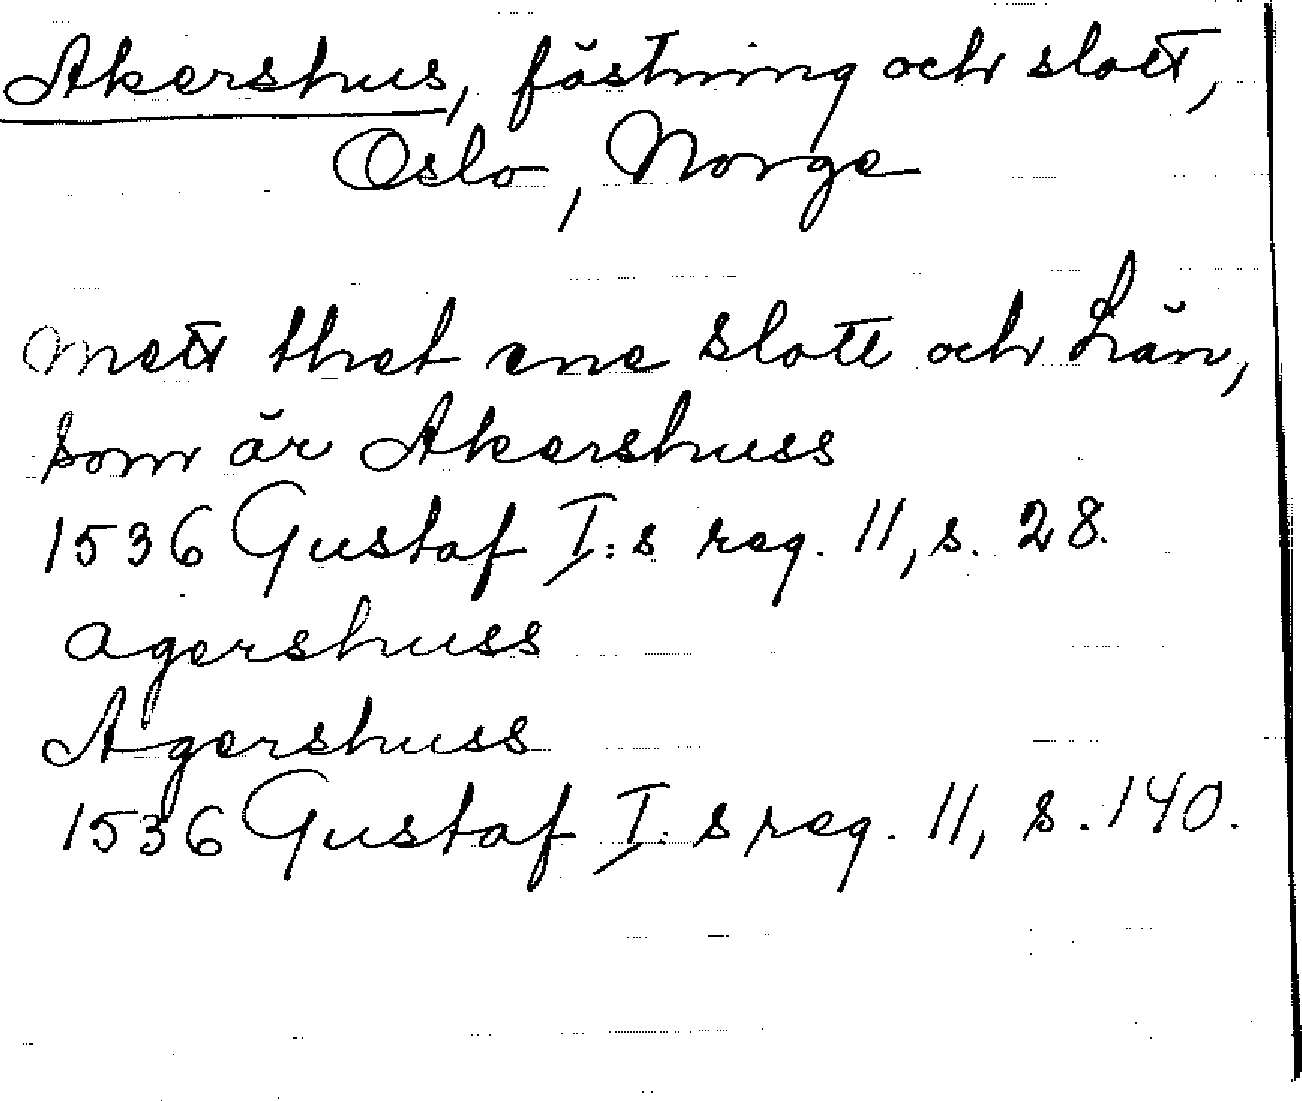 Akershus, fästning och slott,
Oslo, Norge
mett thet ene slott och Län,
som är Akershuss
1536 Gustaf I:s reg. 11, s. 28.
agershuss
Agershuss
1536 Gustaf I:s reg. 11, s. 140.